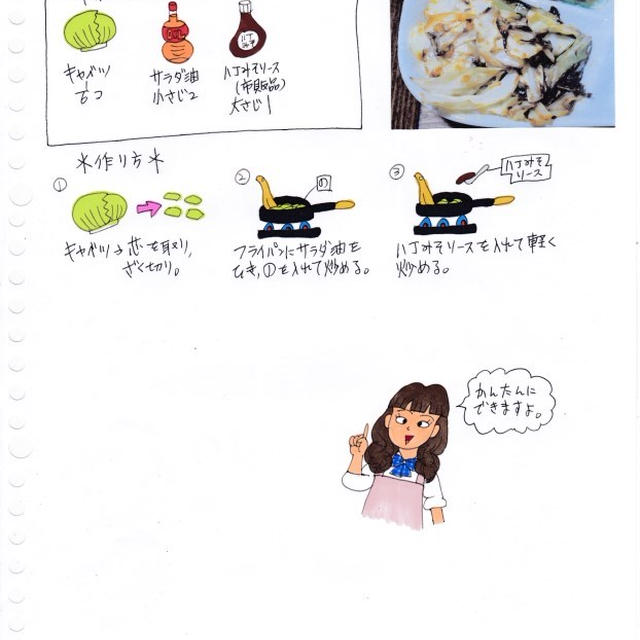 八丁みそ
キャベツ
1/6コ
サラダ油
小さじ2
八丁みそソース
(市販品)
大さじ1
*作り方*
①
キャベツ→芯を取り、
ざく切り。
②
の
フライパンにサラダ油を
ひき、①を入れて炒める。
③
八丁みそ
ソース
八丁みそソースを入れて軽く
炒める。
かんたんに
できますよ。